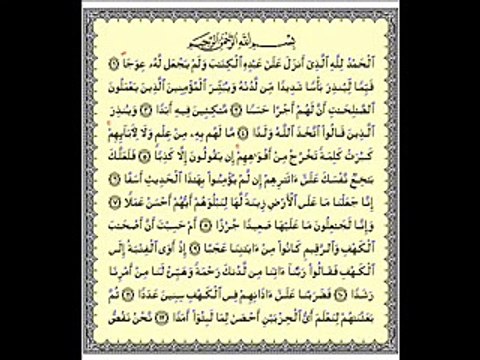 بِسْمِ اللَّهِ الرَّحْمَٰنِ الرَّحِيمِ
الْحَمْدُ لِلَّهِ الَّذِي أَنزَلَ عَلَىٰ عَبْدِهِ الْكِتَابَ وَلَمْ يَجْعَل لَّهُ عِوَجًا ۜ ١
قَيِّمًا لِّيُنذِرَ بَأْسًا شَدِيدًا مِّن لَّدُنْهُ وَيُبَشِّرَ الْمُؤْمِنِينَ الَّذِينَ يَعْمَلُونَ
الصَّالِحَاتِ أَنَّ لَهُمْ أَجْرًا حَسَنًا ٢ مَّاكِثِينَ فِيهِ أَبَدًا ٣ وَيُنذِرَ
الَّذِينَ قَالُوا اتَّخَذَ اللَّهُ وَلَدًا ٤ مَّا لَهُم بِهِ مِنْ عِلْمٍ وَلَا لِآبَائِهِمْ ۚ
كَبُرَتْ كَلِمَةً تَخْرُجُ مِنْ أَفْوَاهِهِمْ ۚ إِن يَقُولُونَ إِلَّا كَذِبًا ٥ فَلَعَلَّكَ
بَاخِعٌ نَّفْسَكَ عَلَىٰ آثَارِهِمْ إِن لَّمْ يُؤْمِنُوا بِهَٰذَا الْحَدِيثِ أَسَفًا ٦
إِنَّا جَعَلْنَا مَا عَلَى الْأَرْضِ زِينَةً لَّهَا لِنَبْلُوَهُمْ أَيُّهُمْ أَحْسَنُ عَمَلًا ٧
وَإِنَّا لَجَاعِلُونَ مَا عَلَيْهَا صَعِيدًا جُرُزًا ٨ أَمْ حَسِبْتَ أَنَّ أَصْحَابَ
الْكَهْفِ وَالرَّقِيمِ كَانُوا مِنْ آيَاتِنَا عَجَبًا ٩ إِذْ أَوَى الْفِتْيَةُ إِلَى
الْكَهْفِ فَقَالُوا رَبَّنَا آتِنَا مِن لَّدُنكَ رَحْمَةً وَهَيِّئْ لَنَا مِنْ أَمْرِنَا
رَشَدًا ١٠ فَضَرَبْنَا عَلَىٰ آذَانِهِمْ فِي الْكَهْفِ سِنِينَ عَدَدًا ١١ ثُمَّ
بَعَثْنَاهُمْ لِنَعْلَمَ أَيُّ الْحِزْبَيْنِ أَحْصَىٰ لِمَا لَبِثُوا أَمَدًا ١٢ نَّحْنُ نَقُصُّ